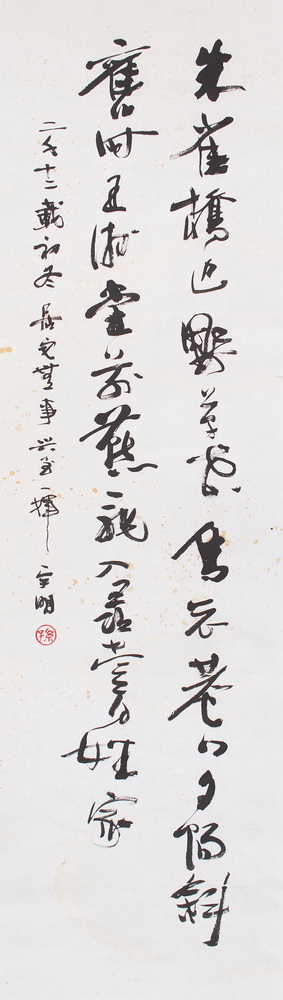 朱雀橋边野草花烏衣巷口夕陽斜
舊時王謝堂前燕飛入尋常百姓家
二千十二載初冬居宅無事興至一揮明
孫